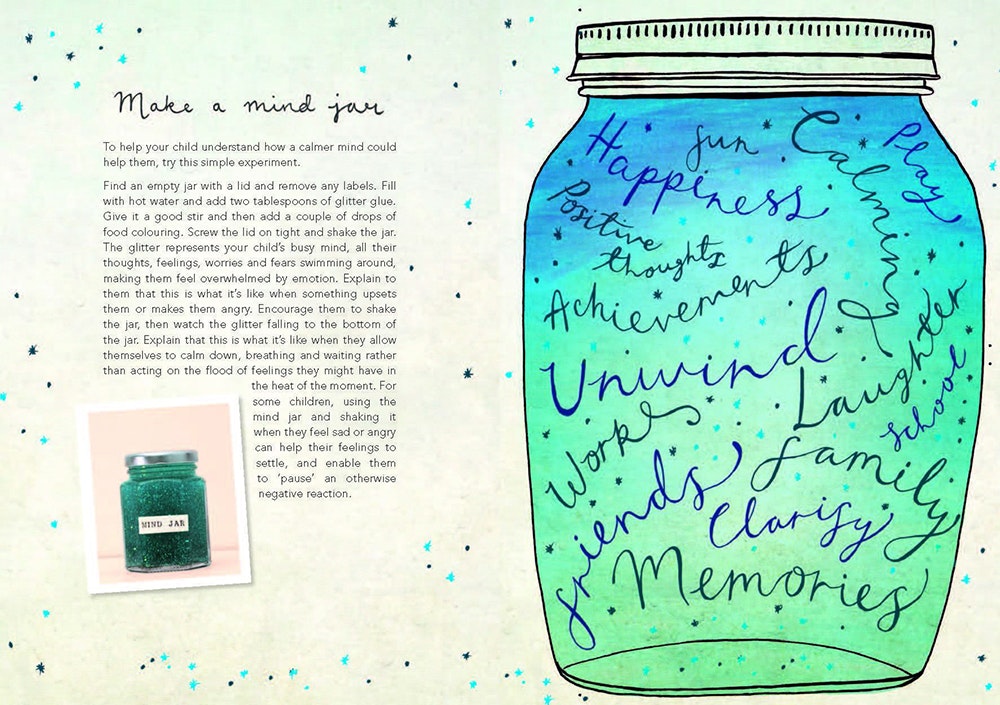 Make a mind jar
To help your child understand how a calmer mind could
help them, try this simple experiment.
Find an empty jar with a lid and remove any labels. Fill
with hot water and add two tablespoons of glitter glue.
Give it a good stir and then add a couple of drops of
food colouring. Screw the lid on tight and shake the jar.
The glitter represents your child's busy mind, all their
thoughts, feelings, worries and fears swimming around,
making them feel overwhelmed by emotion. Explain to
them that this is what it's like when something upsets
them or makes them angry. Encourage them to shake
the jar, then watch the glitter falling to the bottom of
the jar. Explain that this is what it's like when they allow
themselves to calm down, breathing and waiting rather
than acting on the flood of feelings they might have in
the heat of the moment. For
some children, using the
mind jar and shaking it
when they feel sad or angry
can help their feelings to
settle, and enable them
to 'pause' an otherwise
negative reaction.
MIND JAR
Happiness
fun
Calming
Play
Positive
thoughts
Achievements
Unwind
Laughter
School
Works
family
friends
Clarify
Memories